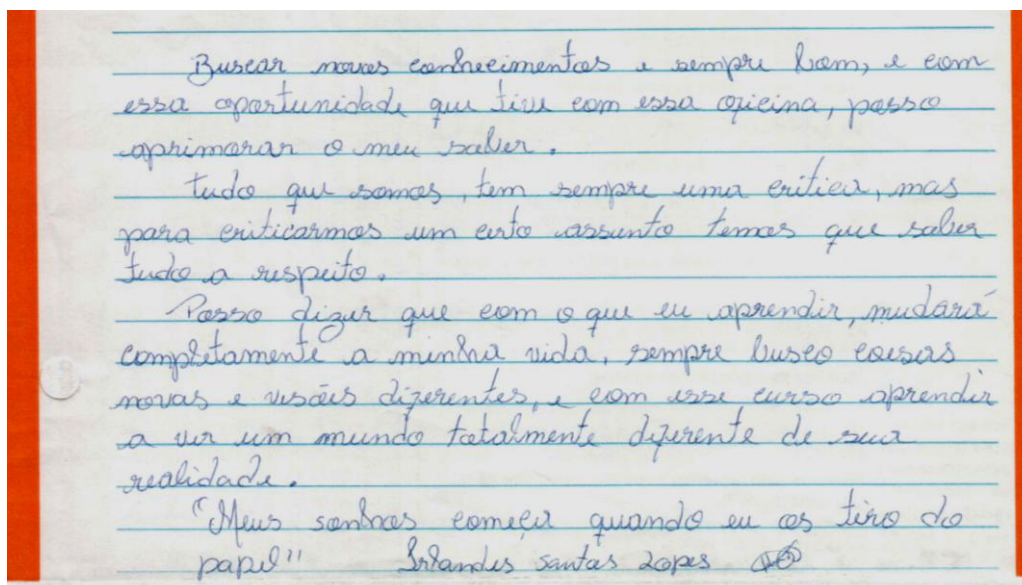 Buscar novos conhecimentos e sempre bom, e com
essa oportunidade que tive com essa oficina, posso
aprimorar o meu saber.
tudo que somos, tem sempre uma critica, mas
para criticarmos um certo assunto temos que saber
tudo a respeito.
Posso dizer que com o que eu aprendir, mudará
completamente a minha vida, sempre busco coisas
novas e visões diferentes, e com esse curso aprendir
a ver um mundo totalmente diferente de sua
realidade.
"Meus sonhos começa quando eu os tiro do
papel" Santos Lopes